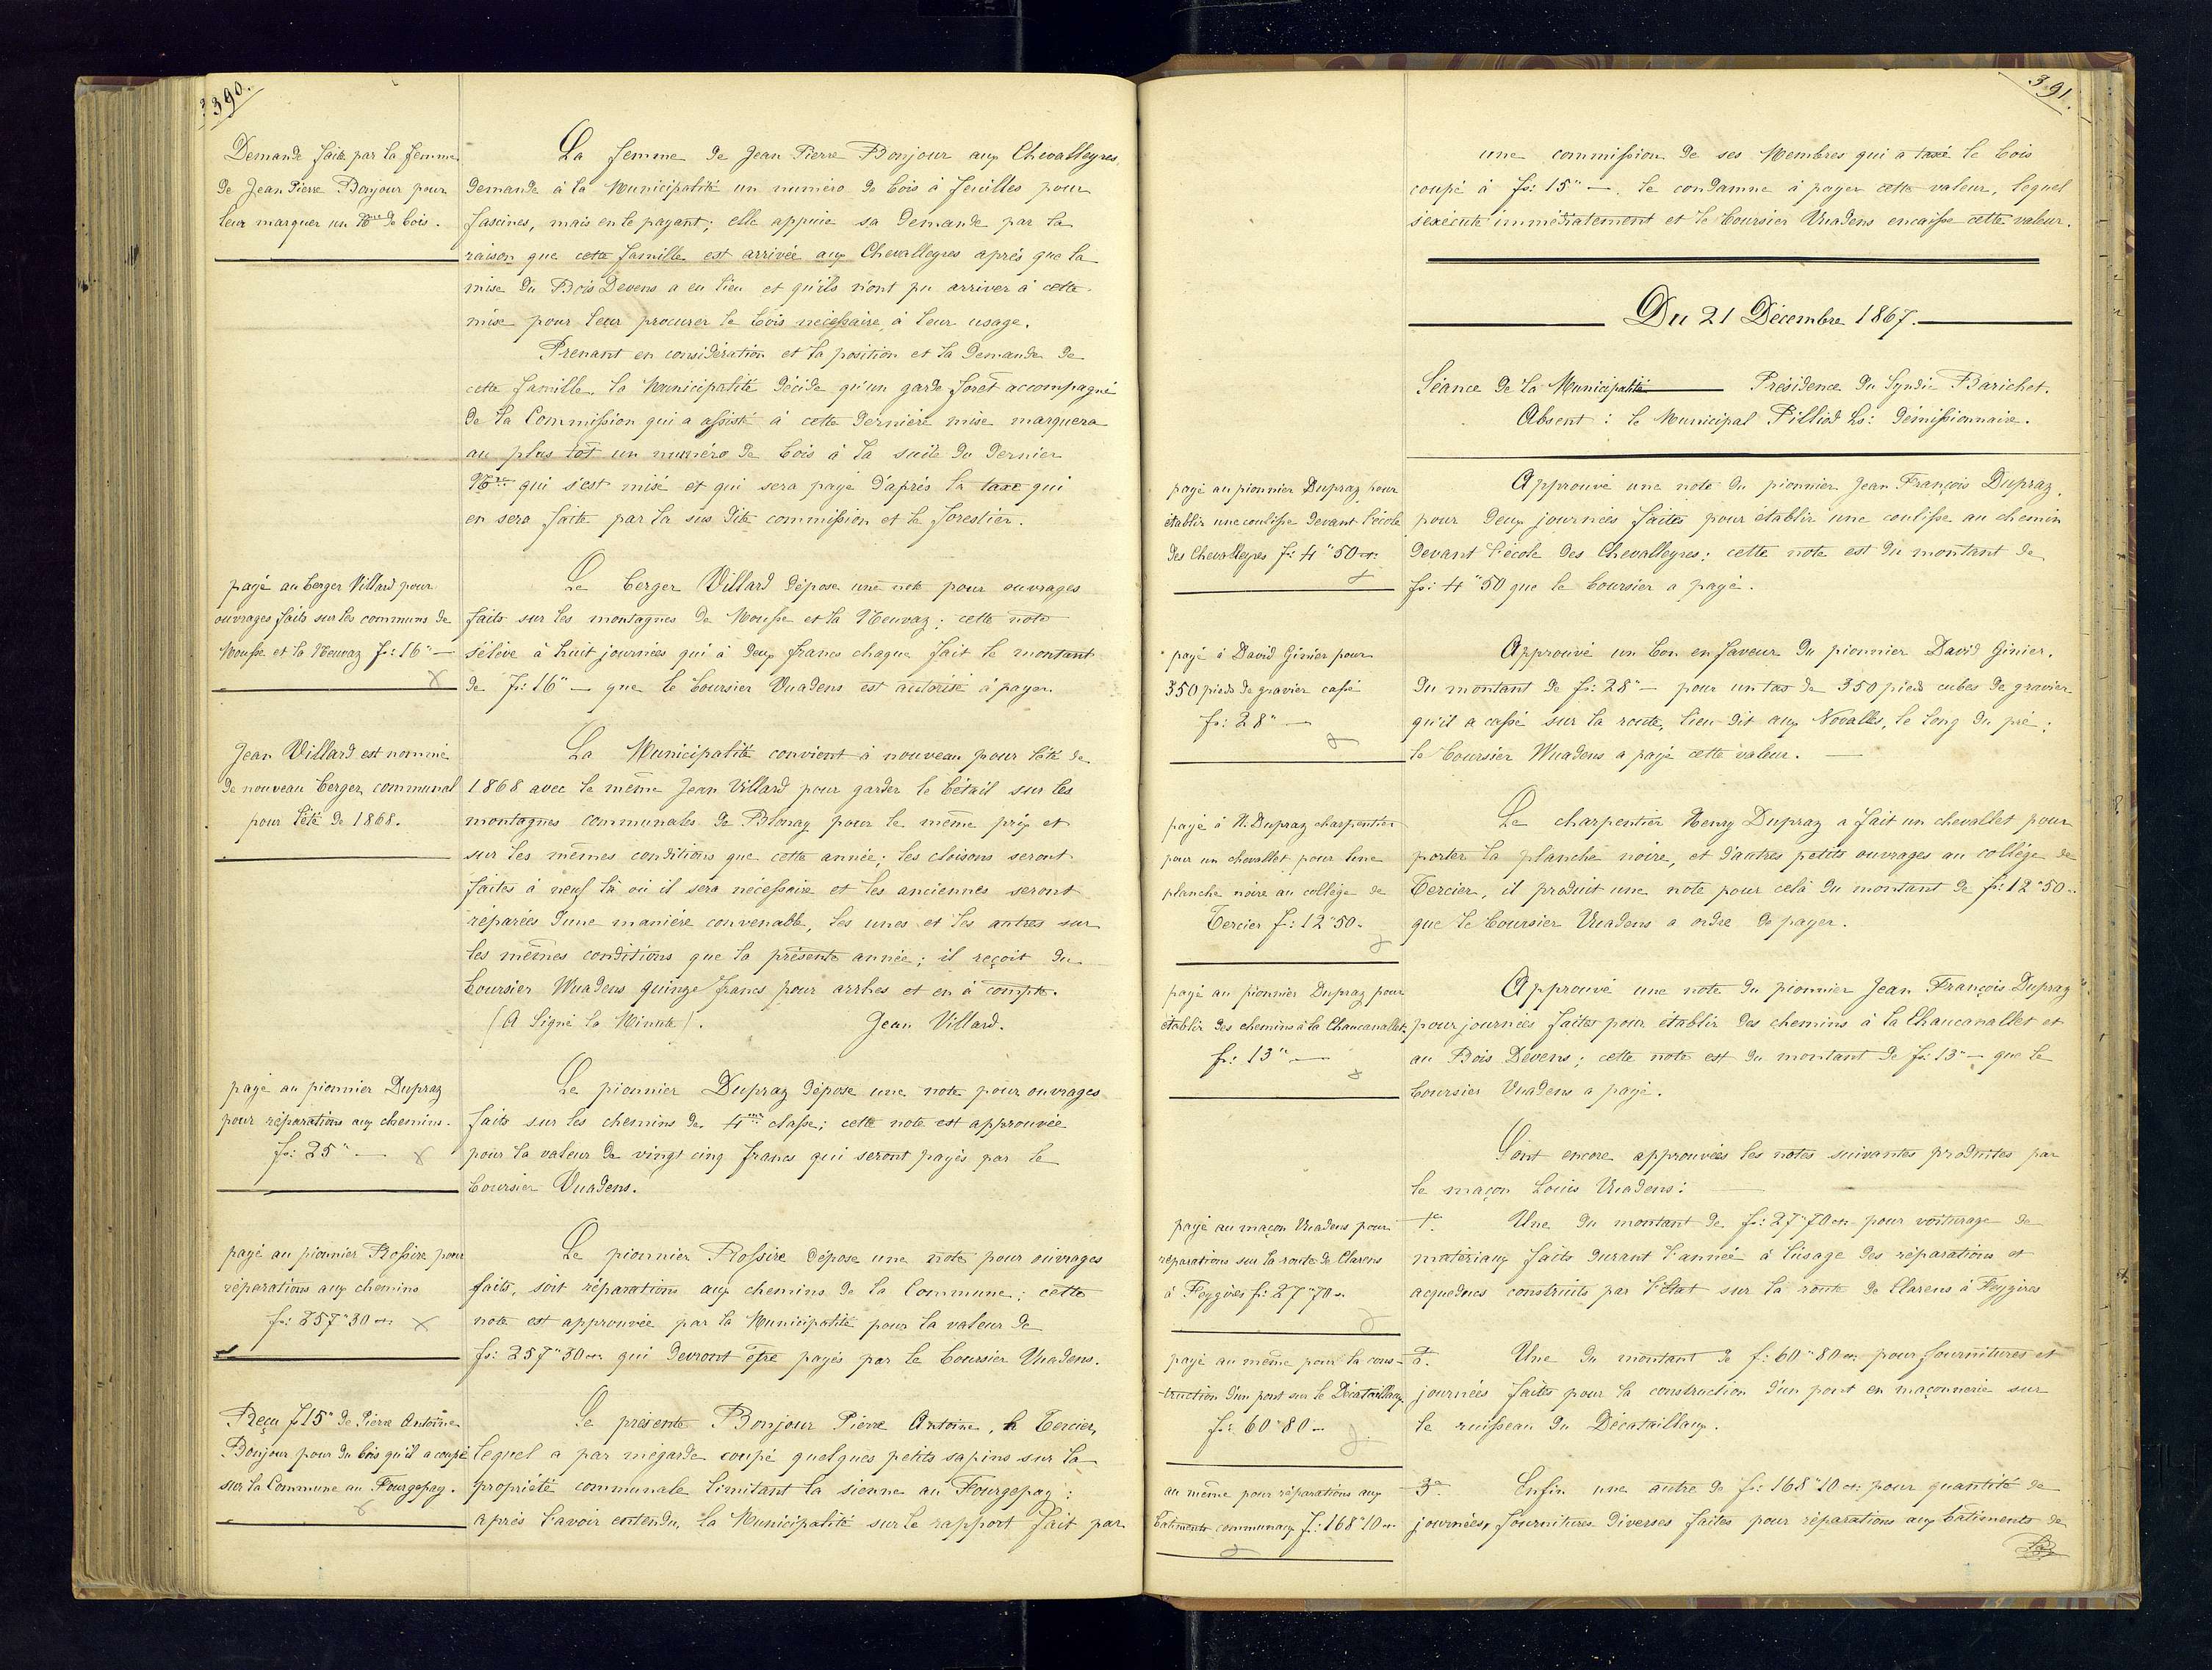 390.
Demande faite par la femme
de Jean Pierre Bonjour pour
leur marquer un No de bois.
La femme de Jean Pierre Bonjour aux Chevalleyres,
demande à la Municipalité un numéro de bois à feuilles pour
fascines, mais en le payant; elle appuie sa demande par la
raison que cette famille est arrivée aux Chevalleyres après que la
mise du Bois Devens a eu lieu et qu'ils n'ont pu arriver à cette
mise pour leur procurer le bois nécessaire à leur usage.
Prenant en considération et la position et la demande de
cette famille, la Municipalité décide qu'un garde forêt accompagné
de la Commission qui a assisté à cette dernière mise marquera
au plus tôt un numéro de bois à la suite du dernier
No qui s'est misé et qui sera payé d'après la taxe qui
en sera faite par la sus dite commission et le forestier.
payé au berger Villard pour
ouvrages faits sur les communs de
Mousse et la Neuvaz f: 16" —
Le berger Villard dépose une note pour ouvrages
faits sur les montagnes de Mousse et la Neuvaz; cette note
s'élève à huit journées qui à deux francs chaque fait le montant
de fr: 16" — que le boursier Vuadens est autorisé à payer.
Jean Villard est nommé
de nouveau berger communal
pour l'été de 1868.
La Municipalité convient à nouveau pour l'été de
1868 avec le même Jean Villard pour garder le bétail sur les
montagnes communales de Blonay pour le même prix et
sur les mêmes conditions que cette année; les cloisons seront
faites à neuf là où il sera nécessaire et les anciennes seront
réparées d'une manière convenable, les unes et les autres sur
les mêmes conditions que la présente année; il reçoit du
boursier Vuadens quinze francs pour arrhes et en à compte.
(A Signé la Minute). Jean Villard.
payé au pionnier Dupraz
pour réparations aux chemins.
fr: 25" —
Le pionnier Dupraz dépose une note pour ouvrages
faits sur les chemins de 4me classe; cette note est approuvée
pour la valeur de vingt cinq francs qui seront payés par le
boursier Vuadens.
payé au pionnier Rossire pour
réparations aux chemins
fr: 257"30 cs
Le pionnier Rossire dépose une note pour ouvrages
faits, soit réparations aux chemins de la Commune; cette
note est approuvée par la Municipalité pour la valeur de
fr: 257"30 cs qui devront être payés par le boursier Vuadens.
Reçu f 15" de Pierre Antoine
Bonjour pour du bois qu'il a coupé
sur la Commune au Fourgepay.
Se présente Bonjour Pierre Antoine, à Tercier,
lequel a par mégarde coupé quelques petits sapins sur la
propriété communale limitant la sienne au Fourgepay;
après l'avoir entendu, la Municipalité sur le rapport fait par
391.
une commission de ses Membres qui a taxé le bois
coupé à fr: 15" —, le condamne à payer cette valeur, lequel
s'exécute immédiatement et le boursier Vuadens encaisse cette valeur.
Du 21 Décembre 1867.
Séance de la Municipalité Présidence du Syndic Barichet.
Absent: le Municipal Pilliod Ls: démissionnaire.
payé au pionnier Dupraz pour
établir une coulisse devant l'école
des Chevalleyres f: 4"50 cs:
Approuvé une note du pionnier Jean François Dupraz,
pour deux journées faites pour établir une coulisse au chemin
devant l'école des Chevalleyres; cette note est du montant de
fr: 4"50 que le boursier a payé.
payé à David Ginier pour
350 pieds de gravier cassé
fr: 28" —
Approuvé un bon en faveur du pionnier David Ginier,
du montant de fr: 28" — pour un tas de 350 pieds cubes de gravier
qu'il a cassé sur la route, lieu dit aux Novalles, le long du pré;
le boursier Vuadens a payé cette valeur. —
payé à H. Dupraz charpentier
pour un chevallet pour une
planche noire au collège de
Tercier f: 12"50.
Le charpentier Henry Dupraz a fait un chevallet pour
porter la planche noire, et d'autres petits ouvrages au collège de
Tercier, il produit une note pour celà du montant de fr: 12"50
que le boursier Vuadens a ordre de payer.
payé au pionnier Dupraz pour
établir des chemins à la Chaucanallet
fr: 13" —
Approuvé une note du pionnier Jean François Dupraz
pour journées faites pour établir des chemins à la Chaucanallet et
au Bois Devens; cette note est du montant de fr: 13" — que le
boursier Vuadens a payé.
Sont encore approuvées les notes suivantes produites par
le maçon Louis Vuadens:
payé au maçon Vuadens pour
réparations sur la route de Clarens
à Feygires f: 27"70 cs.
1o. Une du montant de fr: 27"70 cs pour voiturage de
matériaux faits durant l'année à l'usage des réparations et
aqueducs construits par l'Etat sur la route de Clarens à Feygires
payé au même pour la cons-
truction d'un pont sur le Décataillaux
fr: 60"80
2o. Une du montant de f: 60"80 cs: pour fournitures et
journées faites pour la construction d'un pont en maçonnerie sur
le ruisseau du Décataillaux.
au même pour réparations aux
batiments communaux f: 168"10 cs
3o. Enfin une autre de fr: 168"10 cs: pour quantité de
journées, fournitures diverses faites pour réparations aux bâtiments de